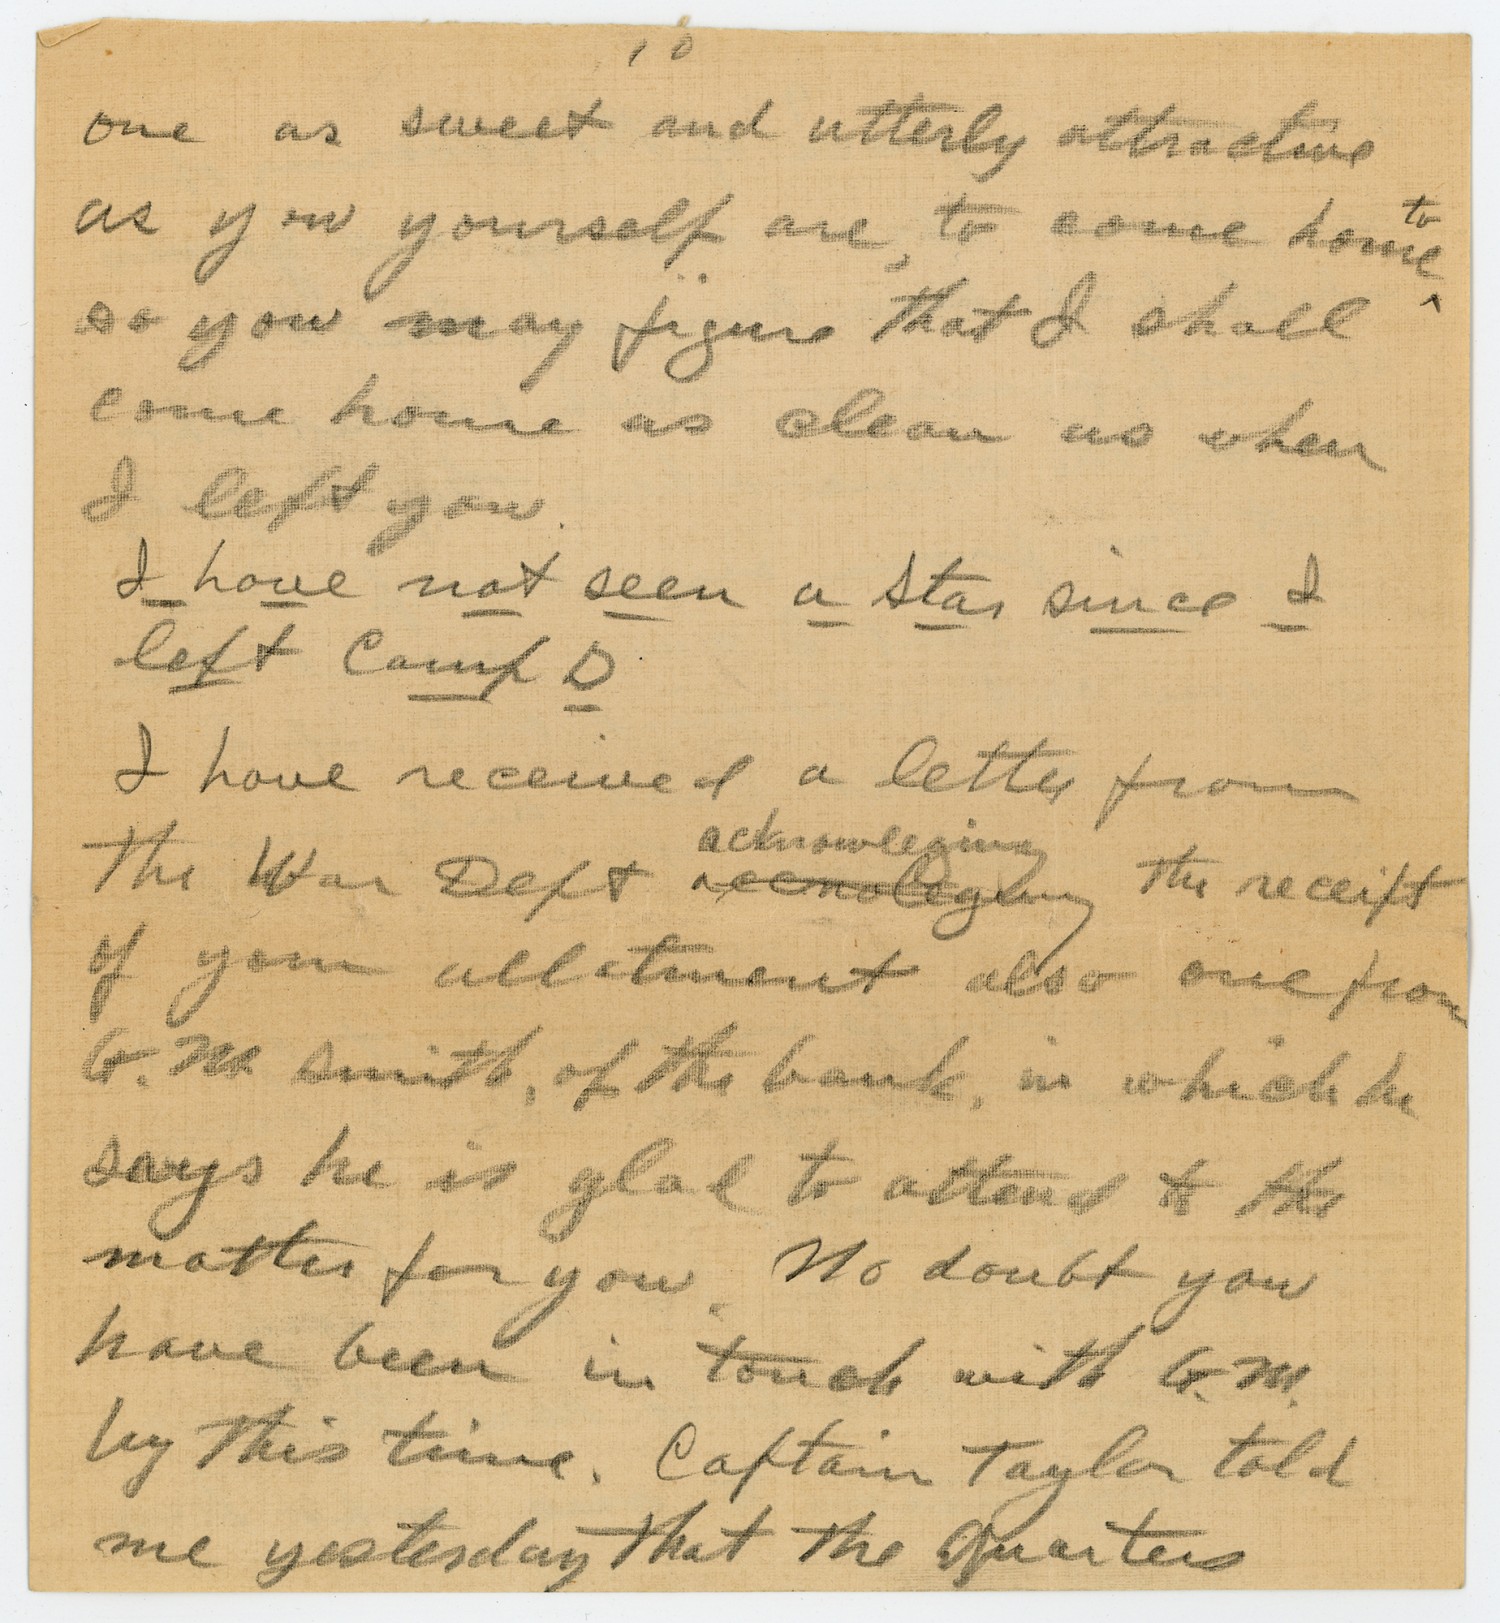 10
one as sweet and utterly attractive
as you yourself are, to come home to
so you may figure that I shall
come home as clean as when
I left you.
I have not seen a star since I
left Camp D.
I have received a letter from
the War Dept acknowleging
accnoleging the receipt
of your allotment also one from
G. M. Smith, of the bank, in which he
says he is glad to attend to the
matter for you. No doubt you
have been in touch with G. M.
by this time. Captain Taylor told
me yesterday that the Quarters